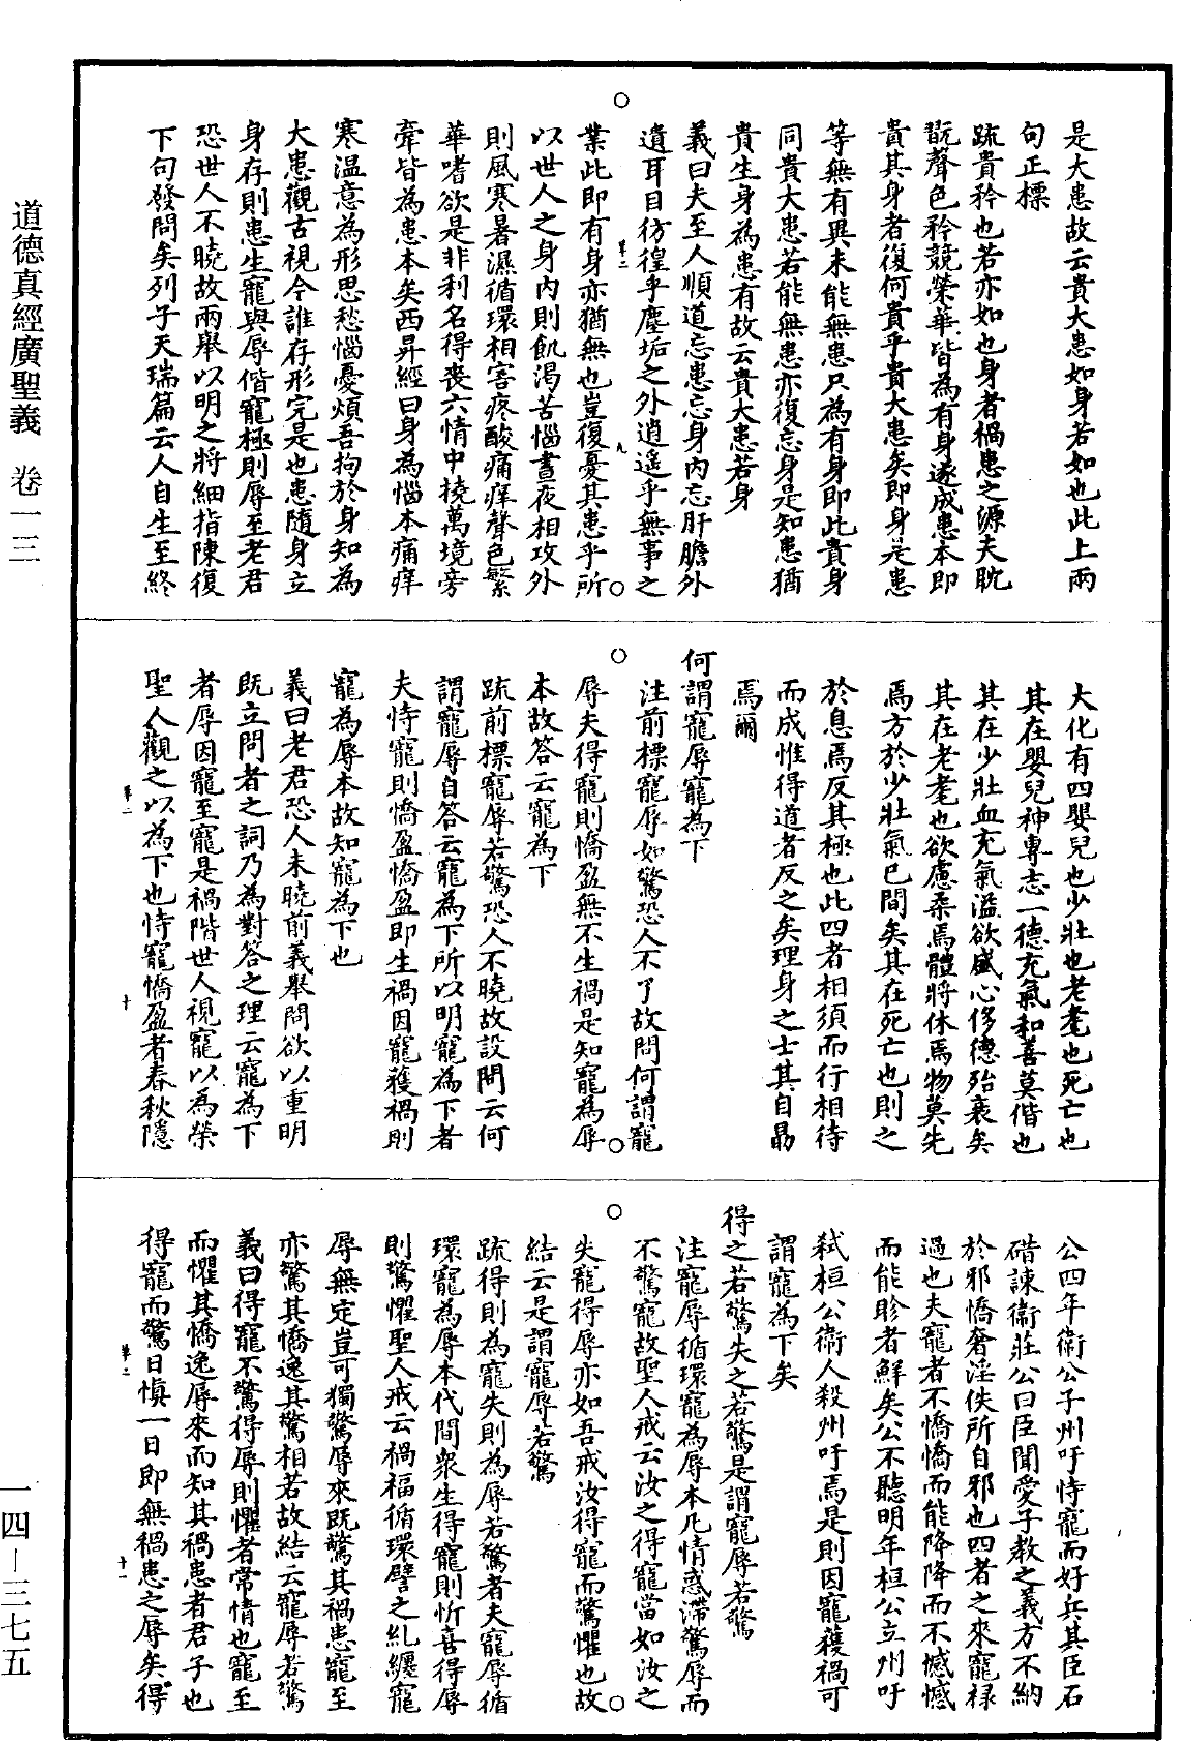 是大患故云貴大患如身若如也此上兩
句正標
疏貴矜也若亦如也身者禍患之源夫耽
翫聲色矜競榮華皆為有身遂成患本即
貴其身者復何貴乎貴大患矣即身是患
等無有異未能無患只為有身即此貴身
同貴大患若能無患亦復忘身是知患猶
貴生身為患有故云貴大患若身
義曰夫至人順道忘患忘身內忘肝膽外
遺耳目彷徨乎塵垢之外逍遙乎無事之
業此即有身亦猶無也豈復憂其患乎所
以世人之身內則飢渴苦惱晝夜相攻外
則風寒暑濕循環相害疼酸痛痒聲色繁
華嗜欲是非利名得喪六情中橈萬境旁
牽皆為患本矣西昇經曰身為惱本痛痒
寒溫意為形思愁惱憂煩吾拘於身知為
大患觀古視今誰存形完是也患隨身立
身存則患生寵與辱偕寵極則辱至老君
恐世人不曉故兩舉以明之將細指陳復
下句發問矣列子天瑞篇云人自生至終
大化有四嬰兒也少壯也老耄也死亡也
其在嬰兒神專志一德充氣和善莫偕也
其在少壯血充氣溢欲盛心侈德殆衰矣
其在老耄也欲慮柔焉體將休焉物莫先
焉方於少壯氣已間矣其在死亡也則之
於息焉反其極也此四者相須而行相待
而成惟得道者反之矣理身之士其自勗
焉爾
何謂寵辱寵為下
注前標寵辱如驚恐人不了故問何謂寵
辱夫得寵則憍盈無不生禍是知寵為辱
本故答云寵為下
疏前標寵辱若驚恐人不曉故設問云何
謂寵辱自答云寵為下所以明寵為下者
夫恃寵則憍盈憍盈即生禍因寵獲禍則
寵為辱本故知寵為下也
義曰老君恐人未曉前義舉問欲以重明
既立問者之詞乃為對答之理云寵為下
者辱因寵至寵是禍階世人視寵以為榮
聖人觀之以為下也恃寵憍盈者春秋隱
公四年衛公子州吁恃寵而好兵其臣石
碏諫衛莊公曰臣聞愛子教之義方不納
於邪憍奢淫佚所自邪也四者之來寵祿
過也夫寵者不憍憍而能降降而不憾憾
而能眕者鮮矣公不聽明年桓公立州吁
弒桓公衛人殺州吁焉是則因寵獲禍可
謂寵為下矣
得之若驚失之若驚是謂寵辱若驚
注寵辱循環寵為辱本凡情惑滯驚辱而
不驚寵故聖人戒云汝之得寵當如汝之
失寵得辱亦如吾戒汝得寵而驚懼也故
結云是謂寵辱若驚
疏得則為寵失則為辱若驚者夫寵辱循
環寵為辱本代間衆生得寵則忻喜得辱
則驚懼聖人戒云禍福循環譬之糺纏寵
辱無定豈可獨驚辱來既驚其禍患寵至
亦驚其憍逸其驚相若故結云寵辱若驚
義曰得寵不驚得辱則懼者常情也寵至
而懼其憍逸辱來而知其禍患者君子也
得寵而驚日慎一日即無禍患之辱矣得
道德真經廣聖義　卷一三
一四－三七五